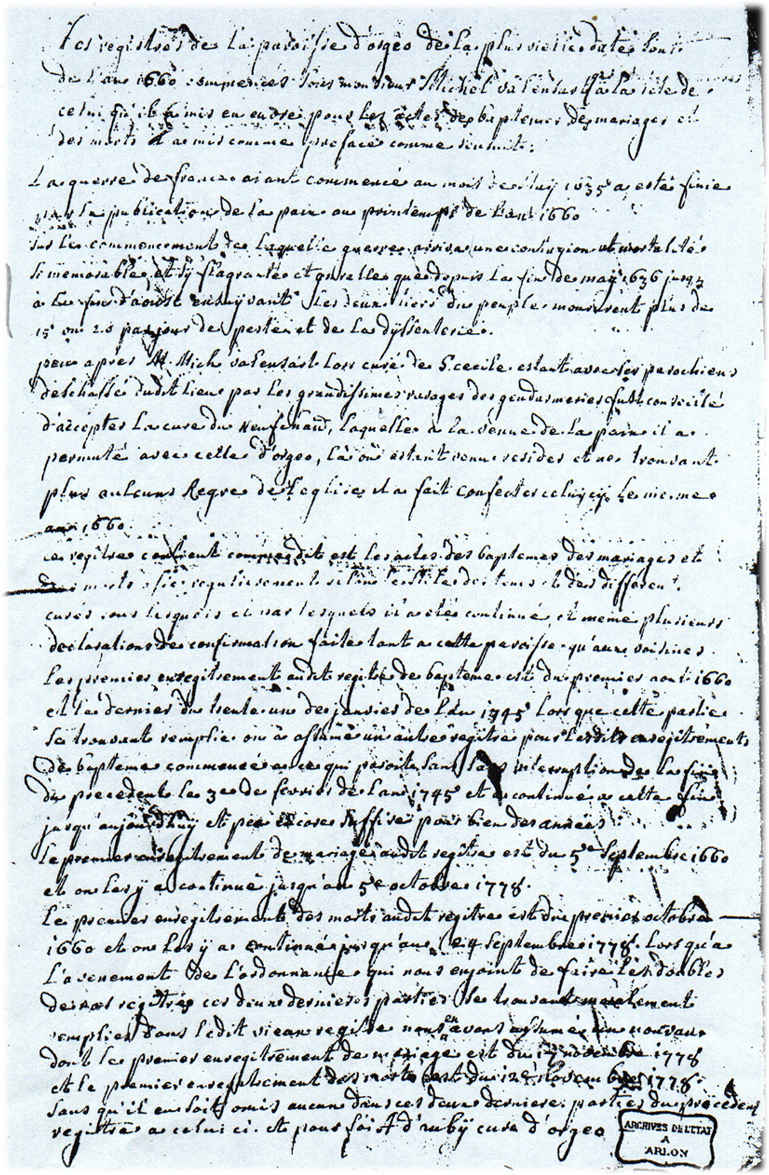 Les registres de la paroisse d'orgeo de la plus vielle date sont
de l'an 1660 commencés sous monsieur Michel valensart à la tete de
celui qu'il a mis en euvre pour les actes de baptemes de mariages et
des morts il a mis comme preface comme sensuit:
La guerre de france aiant commencé au mois de may 1635 a esté finie
par la publication de la paix au printemps de l'an 1660
sur le commencement de laquelle guerre arriva une contagion et mortalité
si memorable et sy flagrante et cruelle que depuis la fin de may 1636 jusq
à la fin d'aoust ensuyvant les deux tiers du peuple moururent plus de
15 ou 20 par jour de peste et de la dyssenterie.
peu apres M. Mich valensart lors curé de S. cecile estant avec ses parochiens
deschassé dudit lieu par les grandissimes ravages des gendarmeries fust conseilé
d'accepter la cure du Neufchatau, laquelle a la venue de la paix il a
permuté avec celle d'orgeo, là où estant venu resider et ne trouvant
plus aulcuns Regre de l'eglise il a fait confecter celuy cy le meme
an 1660.
ce registre contient comme dit est les actes des baptemes des mariages et
des morts regulierement selon le stile des tems et des differens
curés sous lesquels et par lesquels il a eté continué, et meme plusieurs
declarations de confirmation faite tant a cette paroisse qu'aux voisines
Le premier enregitrement audit regitre de bapteme est du premier aout 1660
et le dernier du trente un de janvier de l'an 1745 lors que cette partie
se trouvant remplie on a assumé un autre regitre pour lesdits enregitrements
de bapteme commencé a ce qui paroit sans interruption de la fin
du precedent le 3e de fevrier de l'an 1745 et continué a cette fin
jusqu'aujourd'huy et peu encore suffire pour bien des années
Le premier enregitrement de mariage audit regitre est du 5e Septembre 1660
et on les y a continué jusqu'au 5e octobre 1778.
Le premier enregitrement des morts audit regitre est du premier octobre
1660 et on les y a continué jusqu'au 24 Septembre 1778. Lors qu'a
l'avenement de l'ordonnance qui nous enjoint de faire les doubles
de nos regitres ces deux dernieres parties se trouvant
remplies dans ledit vieux regitre nous en avons assumé un nouveau
dont le premier enregitrement de mariage est du 17 novembre 1778
et le premier enregitrement des morts est du 12e novembre 1778.
sans qu'il en soit omis aucun dans ces deux dernieres parties du precedent
regitre a celui ci. et pour foi d'aubÿ curé d'orgeo
ARCHIVES DE L'ETAT
A
ARLON